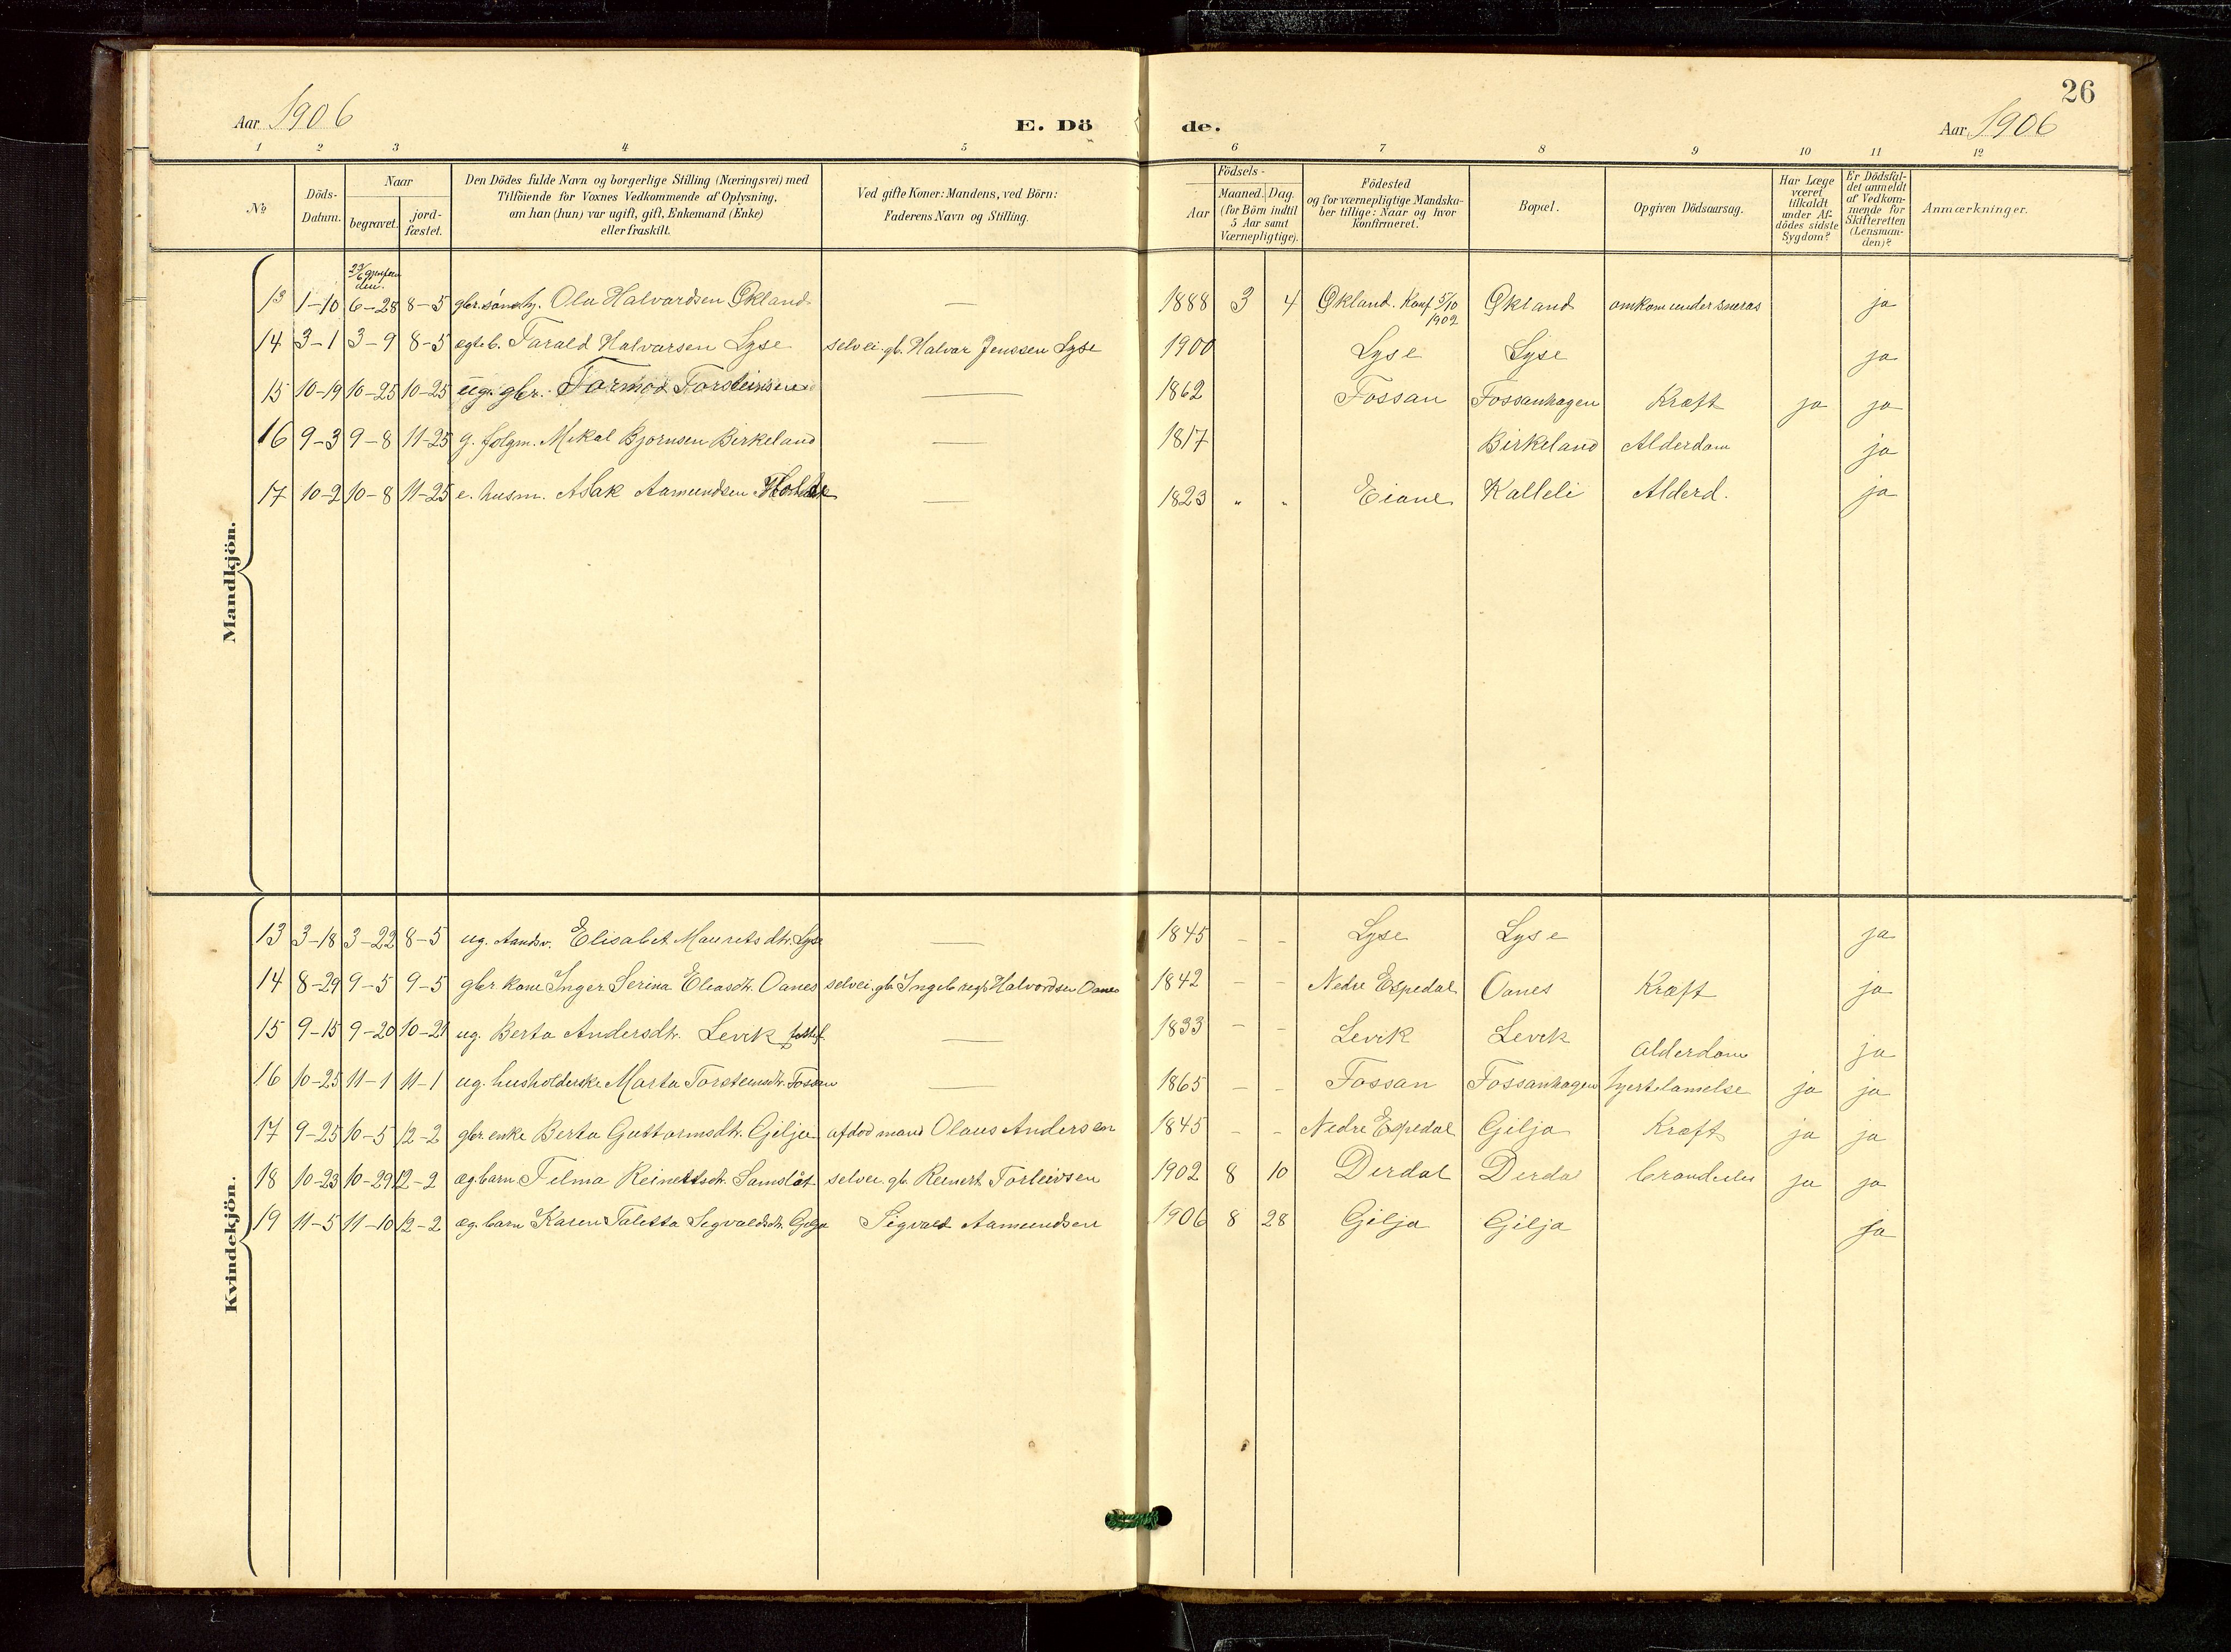 26
Aar 1906
E. Dö de.
Aar 1906
1 2 3 4 5 6 7 8 9 10 11 12
No
Döds-
Datum.
Naar
begravet.
jord-
fæstet.
Den Dödes fulde Navn og borgerlige Stilling (Næringsvei) med
Tilföiende for Voxnes Vedkommende af Oplysning,
om han (hun) var ugift, gift, Enkemand (Enke)
eller fraskilt.
Ved gifte Koner: Mandens, ved Börn:
Faderens Navn og Stilling.
Födsels-
Aar
Maaned. Dag.
(for Börn indtil
5 Aar samt
Værnepligtige).
Födested
og for værnepligtige Mandska-
ber tillige: Naar og hvor
konfirmeret.
Bopæl.
Opgiven Dödsaarsag.
Har Læge
været
tilkaldt
under Af-
dödes sidste
Sygdom?
Er Dödsfal-
det anmeldt
af Vedkom-
mende for
Skifteretten
(Lensman-
den)?
Anmærkninger.
Mandkjön.
13 1-10 6-28 8-5 gbr. sön Ola Halvardsen Økland — 1888 3 4 Økland. Konf 5/10 1902 Økland omkom under sneras ja
14 3-1 3-9 8-5 ægte b. Tarald Halvarsen Lyse selvei. gb. Halvar Jenssen Lyse 1900 Lyse Lyse ja
15 10-19 10-25 10-25 ug. gbr. Tormod Torsteinsen — 1862 Fossan Fossanhagen Kræft ja ja
16 9-3 9-8 11-25 g. folgm. Mikal Bjornsen Birkeland — 1817 Birkeland Alderdom ja
17 10-2 10-8 11-25 e. husm. Aslak Aamundsen — 1823 " " Eiane Kalleli Alderd. ja
Kvindekjön.
13 3-18 3-22 8-5 ug. Elisabet Mauritsdtr. Lyse — 1845 - - Lyse Lyse ja
14 8-29 9-5 9-5 gbr kone Inger Serina Eliasdtr. Oanes selvei. gb. Ingebregt Halvordsen Oanes 1842 - - Nedre Espedal Oanes Kræft ja
15 9-15 9-20 10-21 ug. Berta Andersdtr. Levik — 1833 - - Levik Levik Alderdom ja
16 10-25 11-1 11-1 ug. husholderske Marta Torsteinsdtr. Fossan — 1865 - - Fossan Fossanhagen hjertelamelse ja ja
17 9-25 10-5 12-2 gbr. enke Berta Guttormsdtr. Gilja afdød mand Olaus Andersen 1845 - - Nedre Espedal Gilja Kræft ja ja
18 10-23 10-29 12-2 æg. barn Telma Reinertsdtr. selvei. gb. Reinert Torleivsen 1902 8 10 Dirdal Dirdal ja ja
19 11-5 11-10 12-2 æg. barn Karen Taletta Segvaldsdtr. Gilja Sigvald Aamundsen 1906 8 28 Gilja Gilja ja